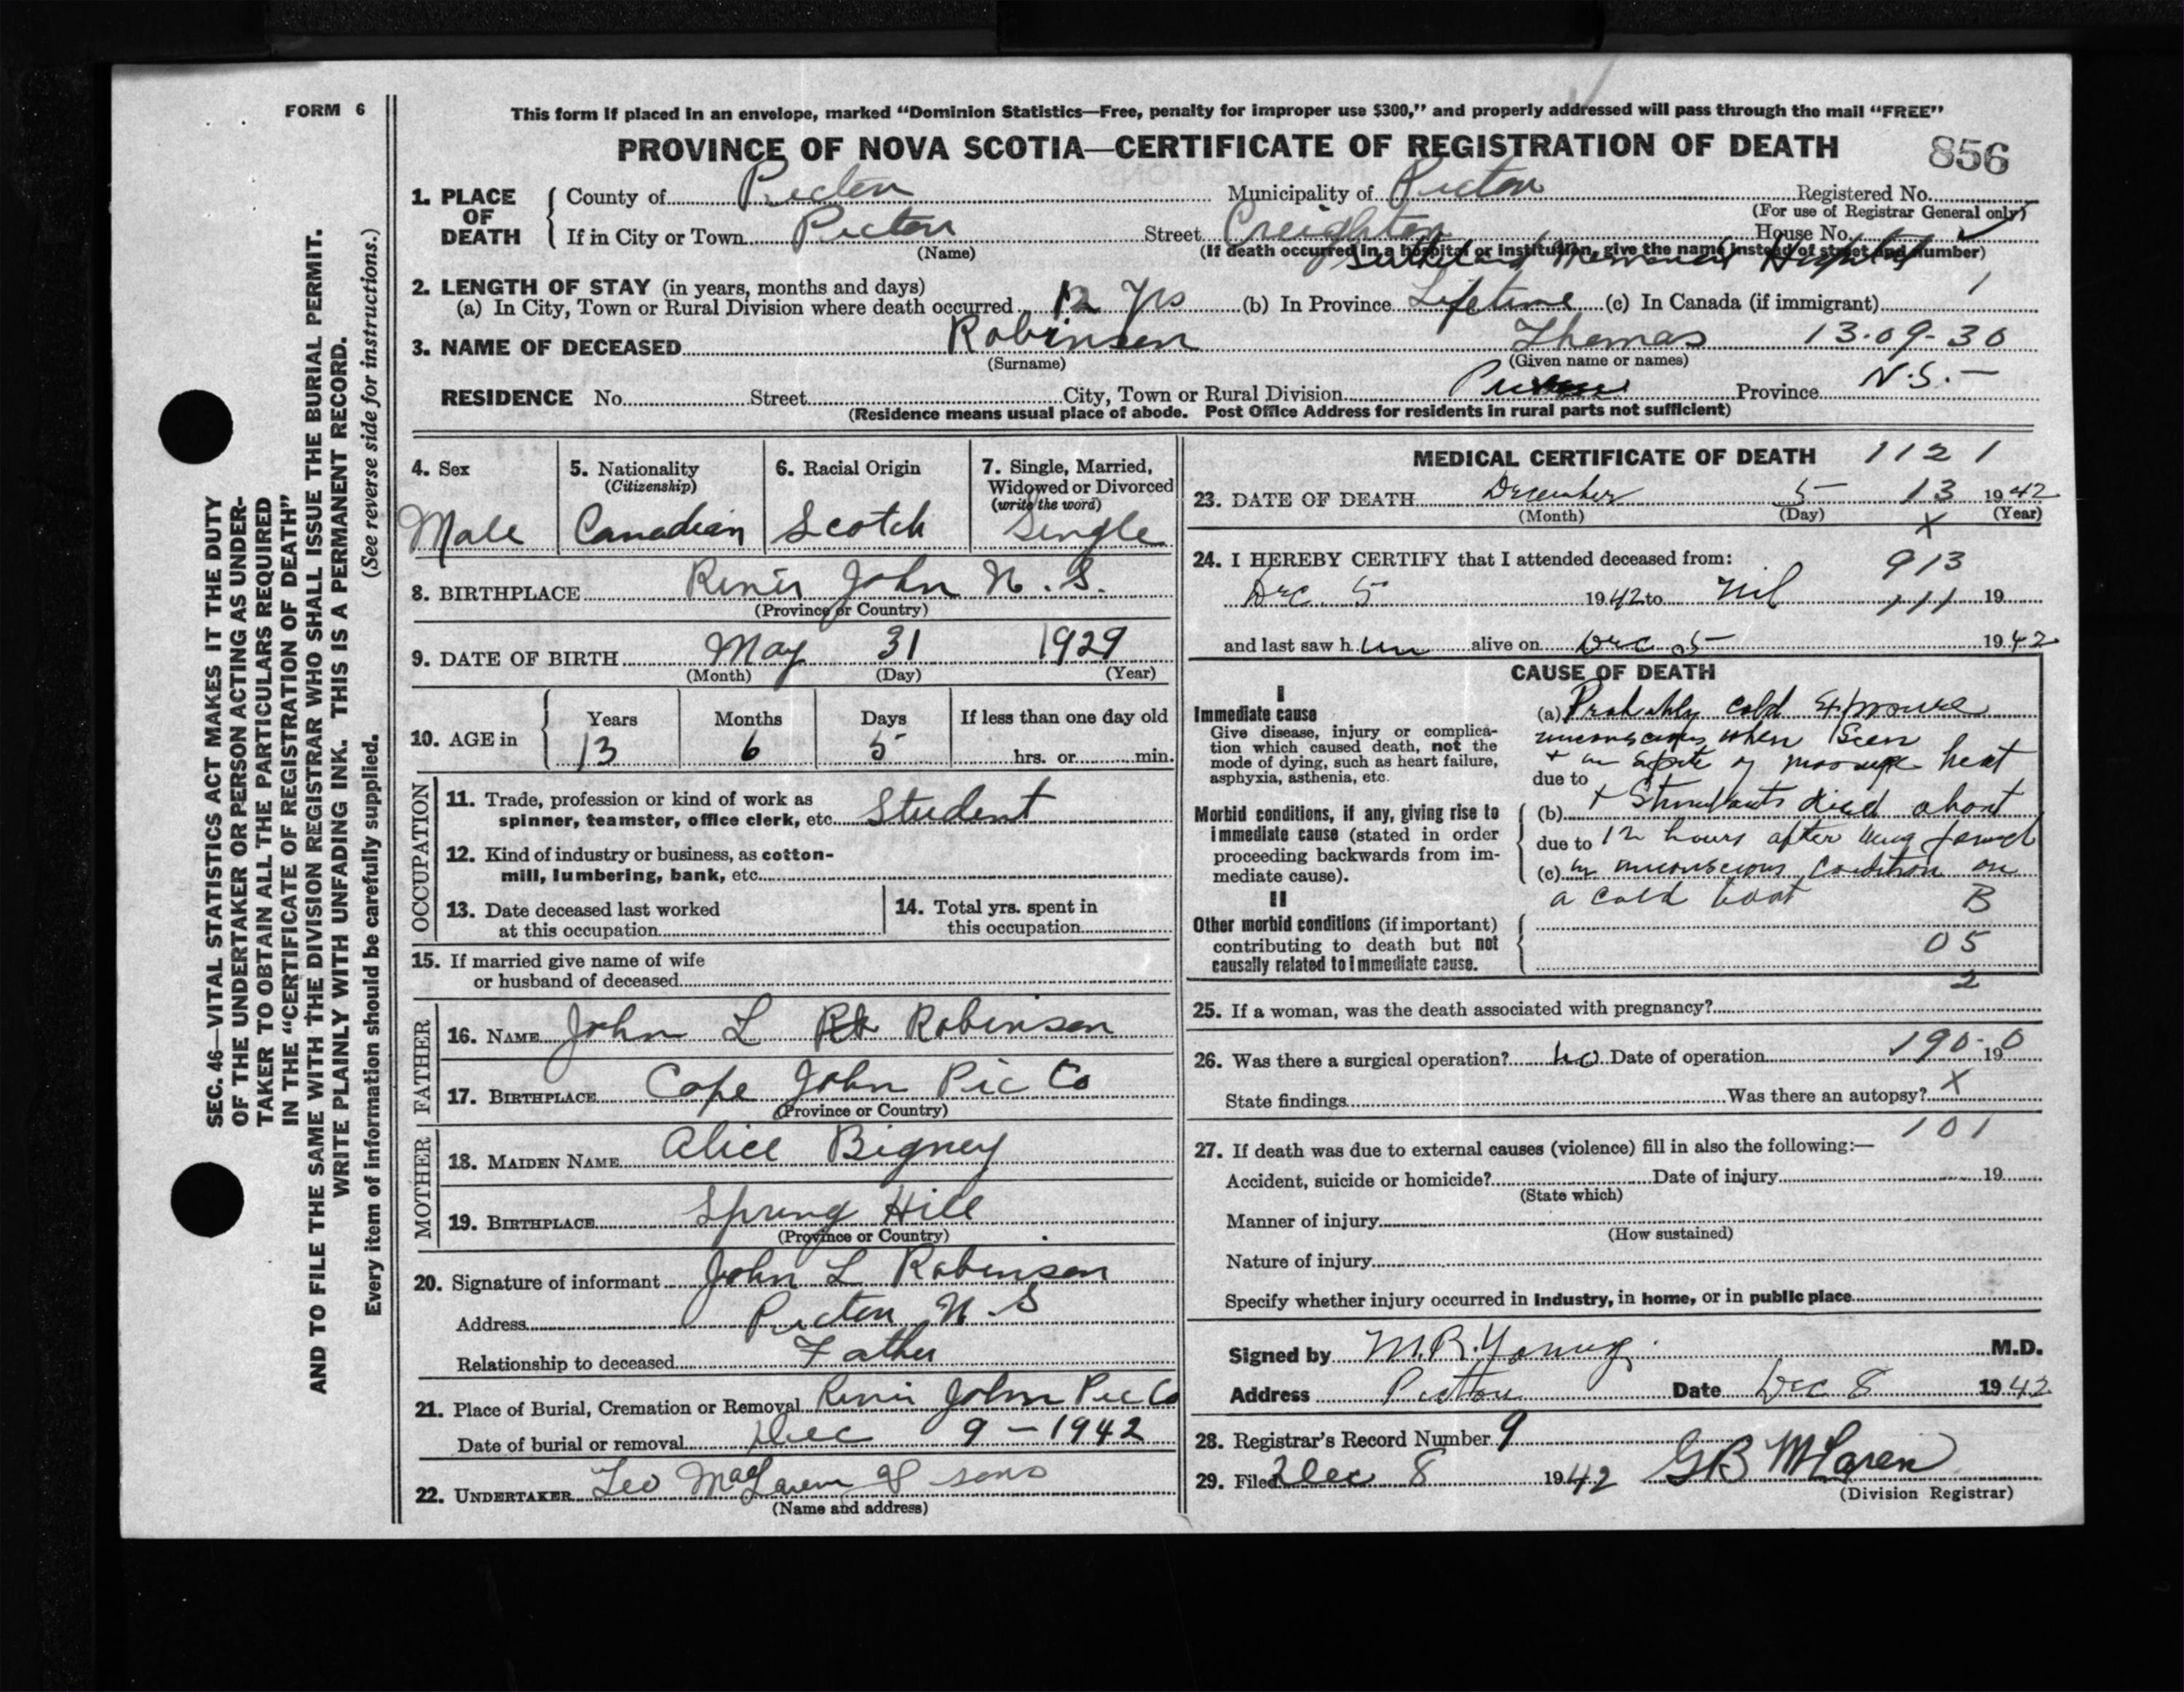 FORM 6
This form if placed in an envelope, marked “Dominion Statistics—Free, penalty for improper use $300,” and properly addressed will pass through the mail “FREE”
PROVINCE OF NOVA SCOTIA—CERTIFICATE OF REGISTRATION OF DEATH
856
1. PLACE OF DEATH
County of Pictou Municipality of Pictou Registered No.
(For use of Registrar General only)
If in City or Town Pictou Street Creighton House No.
(Name) (If death occurred in a hospital or institution, give the name instead of street and number)
Sutherland Memorial Hospital
2. LENGTH OF STAY (in years, months and days)
(a) In City, Town or Rural Division where death occurred 12 yrs (b) In Province Lifetime (c) In Canada (if immigrant) 1
3. NAME OF DECEASED Robinson Thomas 13-09-30
(Surname) (Given name or names)
RESIDENCE No. Street City, Town or Rural Division Pictou Province N.S. —
(Residence means usual place of abode. Post Office Address for residents in rural parts not sufficient)
4. Sex
Male
5. Nationality
(Citizenship)
Canadian
6. Racial Origin
Scotch
7. Single, Married,
Widowed or Divorced
(write the word)
Single
8. BIRTHPLACE River John N.S.
(Province or Country)
9. DATE OF BIRTH May 31 1929
(Month) (Day) (Year)
10. AGE in
Years Months Days If less than one day old
13 6 5 hrs. or min.
OCCUPATION
11. Trade, profession or kind of work as
spinner, teamster, office clerk, etc. Student
12. Kind of industry or business, as cotton-
mill, lumbering, bank, etc.
13. Date deceased last worked
at this occupation
14. Total yrs. spent in
this occupation
15. If married give name of wife
or husband of deceased
FATHER
16. NAME John L Robinson
17. BIRTHPLACE Cape John Pic Co
(Province or Country)
MOTHER
18. MAIDEN NAME Alice Bigney
19. BIRTHPLACE Spring Hill
(Province or Country)
20. Signature of informant John L Robinson
Address Pictou N.S
Relationship to deceased Father
21. Place of Burial, Cremation or Removal River John Pic Co
Date of burial or removal Dec 9 - 1942
22. UNDERTAKER Leo MacLaren & sons
(Name and address)
MEDICAL CERTIFICATE OF DEATH 1121
23. DATE OF DEATH December 5 13 1942
(Month) (Day) (Year)
X
24. I HEREBY CERTIFY that I attended deceased from:
913
Dec 5 1942 to Nil 111 19
and last saw him alive on Dec 5 1942
CAUSE OF DEATH
I
Immediate cause
Give disease, injury or complica-
tion which caused death, not the
mode of dying, such as heart failure,
asphyxia, asthenia, etc.
Morbid conditions, if any, giving rise to
immediate cause (stated in order
proceeding backwards from im-
mediate cause).
II
Other morbid conditions (if important)
contributing to death but not
causally related to immediate cause.
(a) Probably cold exposure
unconscious when seen
+ in spite of massage heat
due to
(b) + Stimulants died about
due to 12 hours after being found
(c) in unconscious condition on
a cold boat
B
05
2
25. If a woman, was the death associated with pregnancy?
26. Was there a surgical operation? no Date of operation 190-0 19
State findings Was there an autopsy? X
101
27. If death was due to external causes (violence) fill in also the following:—
Accident, suicide or homicide? Date of injury 19
(State which)
Manner of injury
(How sustained)
Nature of injury
Specify whether injury occurred in industry, in home, or in public place
Signed by M.R. Young M.D.
Address Pictou Date Dec 8 1942
28. Registrar's Record Number 9
29. Filed Dec 8 1942 GB McLaren
(Division Registrar)
SEC. 46—VITAL STATISTICS ACT MAKES IT THE DUTY
OF THE UNDERTAKER OR PERSON ACTING AS UNDER-
TAKER TO OBTAIN ALL THE PARTICULARS REQUIRED
IN THE “CERTIFICATE OF REGISTRATION OF DEATH”
AND TO FILE THE SAME WITH THE DIVISION REGISTRAR WHO SHALL ISSUE THE BURIAL PERMIT.
WRITE PLAINLY WITH UNFADING INK. THIS IS A PERMANENT RECORD.
Every item of information should be carefully supplied. (See reverse side for instructions.)